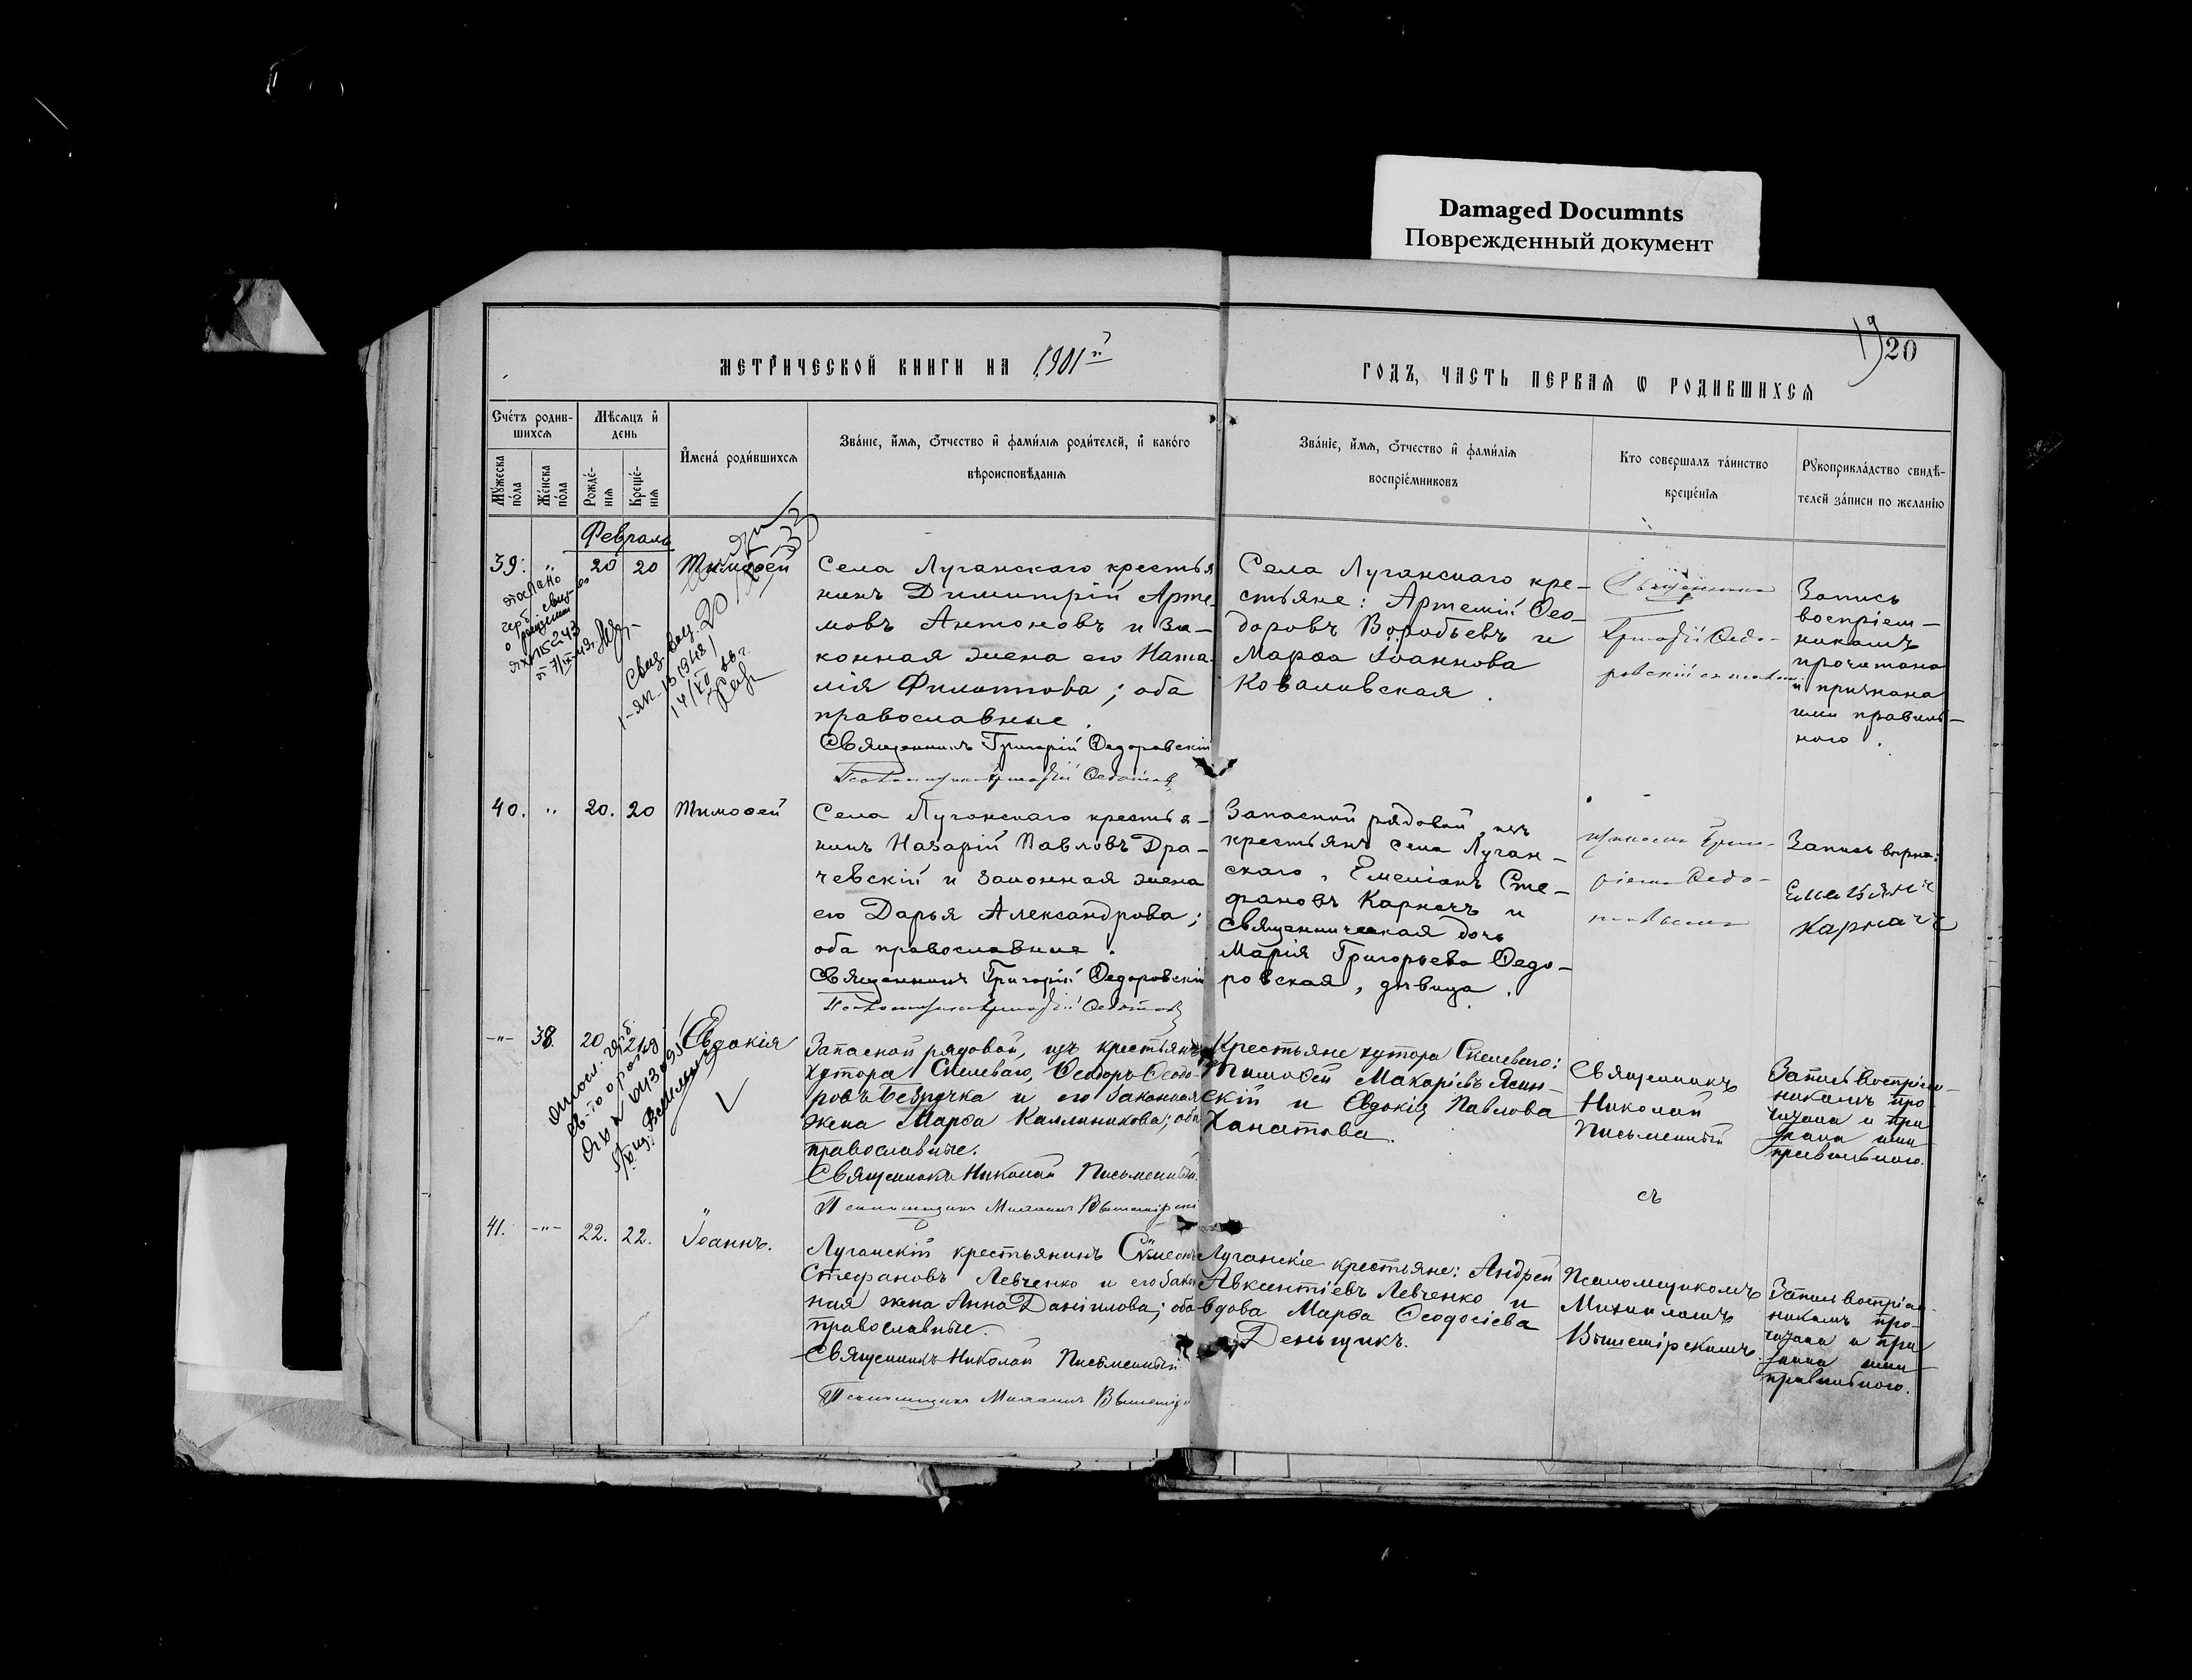 Damaged Documnts
Поврежденный документ
20
19
МЕТРИЧЕСКОЙ КНИГИ НА 1901 й
ГОДЪ, ЧАСТЬ ПЕРВАЯ Ѡ РОДИВШИХСЯ
Счётъ родив-
шихся
Мужеска
пола
Женска
пола
Мѣсяцъ и
день
Рожде-
нія
Креще-
нія
Имена родившихся
Званіе, имя, отчество и фамилія родителей, и какого
вѣроисповѣданія
Званіе, имя, отчество и фамилія
воспріемниковъ
Кто совершалъ таинство
крещенія
Рукоприкладство свидѣ-
телей записи по желанію
Февраль
39. " 20 20 Тимофей
Села Луганскаго крестья
нинъ Димитрій Арте-
мовъ Антоновъ и за-
конная жена его Ната-
лія Филиппова; оба
православные.
Священникъ Григорій Ѳедоровскій
Села Луганскаго кре-
стьяне: Артемій Ѳео-
доровъ Воробьевъ и
Марѳа Іоаннова
Ковалевская.
Священникъ
Григорій Ѳедо-
ровскій
Запись
воспріем-
никамъ
прочитана
и признана
ими правиль-
ною.
40. " 20. 20 Тимоѳей
Села Луганскаго крестья-
нинъ Назарій Павловъ Дра-
чевскій и законная жена
его Дарья Александрова;
оба православные.
Священникъ Григорій Ѳедоровскій
Запасный рядовой, изъ
крестьянъ села Луган-
скаго, Емеліанъ Сте-
фановъ Карначъ и
Священническая дочь
Марія Григорьева Ѳедо-
ровская, дѣвица.
Запись вѣрна:
Емельянъ
Карначъ
-"- 38. 20 21 Евдокія
Запасной рядовой, изъ крестьянъ
хутора Скелеваго, Ѳеодоръ Ѳеодо-
ровъ Безручка и его законная
жена Марѳа Каллиникова; оба
православные.
Священникъ Николай Письменный.
Псаломщикъ Михаилъ Вышемірскі
Крестьяне хутора Скелеваго:
Тимоѳей Макаріевъ Ясин-
скій и Евдокія Павлова
Ханатова.
Священникъ
Николай
Письменный
съ
Запись воспріем-
никамъ про-
читана и при
знана ими
правильною.
41. -"- 22. 22. Іоаннъ.
Луганскій крестьянинъ Сѵмеонъ
Стефановъ Левченко и его закон
ная жена Анна Даніилова; оба
православные.
Священникъ Николай Письменный
Псаломщикъ Михаилъ Вышемір
Луганскіе крестьяне: Андрей
Авксентіевъ Левченко и
вдова Марѳа Ѳеодосіева
Деньщикъ.
Псаломщикомъ
Михаиломъ
Вышемірскимъ.
Запись воспріем-
никамъ про-
читана и при
знана ими
правильною.